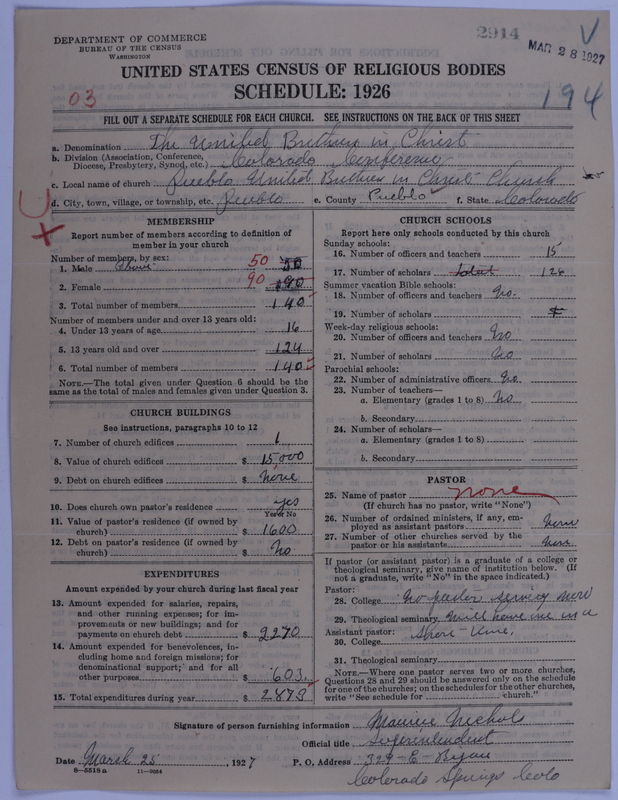 2914
MAR 28 1927
DEPARTMENT OF COMMERCE
BUREAU OF THE CENSUS
WASHINGTON
UNITED STATES CENSUS OF RELIGIOUS BODIES
SCHEDULE: 1926
03
194
FILL OUT A SEPARATE SCHEDULE FOR EACH CHURCH. SEE INSTRUCTIONS ON THE BACK OF THIS SHEET
a. Denomination The United Brethren in Christ
b. Division (Association, Conference, Diocese, Presbytery, Synod, etc.) Colorado Conference
c. Local name of church Pueblo United Brethren in Christ Church
d. City, town, village, or township, etc. Pueblo e. County Pueblo f. State Colorado
MEMBERSHIP
Report number of members according to definition of
member in your church
Number of members, by sex:
1. Male 50 50
2. Female 90
3. Total number of members 140
Number of members under and over 13 years old:
4. Under 13 years of age 16
5. 13 years old and over 124
6. Total number of members 140
NOTE.—The total given under Question 6 should be the
same as the total of males and females given under Question 3.
CHURCH BUILDINGS
See instructions, paragraphs 10 to 12
7. Number of church edifices 1
8. Value of church edifices $ 15,000
9. Debt on church edifices $ None
10. Does church own pastor's residence yes
Yes or No
11. Value of pastor's residence (if owned by
church) $ 1600
12. Debt on pastor's residence (if owned by
church) $ No
EXPENDITURES
Amount expended by your church during last fiscal year
13. Amount expended for salaries, repairs,
and other running expenses; for im-
provements or new buildings; and for
payments on church debt $ 2270
14. Amount expended for benevolences, in-
cluding home and foreign missions; for
denominational support; and for all
other purposes $ 603.
15. Total expenditures during year $ 2873
CHURCH SCHOOLS
Report here only schools conducted by this church
Sunday schools:
16. Number of officers and teachers 15
17. Number of scholars total 126
Summer vacation Bible schools:
18. Number of officers and teachers No.
19. Number of scholars
Week-day religious schools:
20. Number of officers and teachers No
21. Number of scholars No
Parochial schools:
22. Number of administrative officers No.
23. Number of teachers—
a. Elementary (grades 1 to 8) No
b. Secondary
24. Number of scholars—
a. Elementary (grades 1 to 8)
b. Secondary
PASTOR
25. Name of pastor none
(If church has no pastor, write "None")
26. Number of ordained ministers, if any, em-
ployed as assistant pastors None
27. Number of other churches served by the
pastor or his assistants None
If pastor (or assistant pastor) is a graduate of a college or
theological seminary, give name of institution below. (If
not a graduate, write "No" in the space indicated.)
Pastor:
28. College No pastor
29. Theological seminary Will have one in a
Assistant pastor: Short time.
30. College
31. Theological seminary
NOTE.—Where one pastor serves two or more churches,
Questions 28 and 29 should be answered only on the schedule
for one of the churches; on the schedules for the other churches,
write "See schedule for church."
Signature of person furnishing information Maurice Nichols
Official title Superintendent
Date March 25, 1927 P. O. Address 329-E-Bijou
8—5518a 11—9064 Colorado Springs Colo